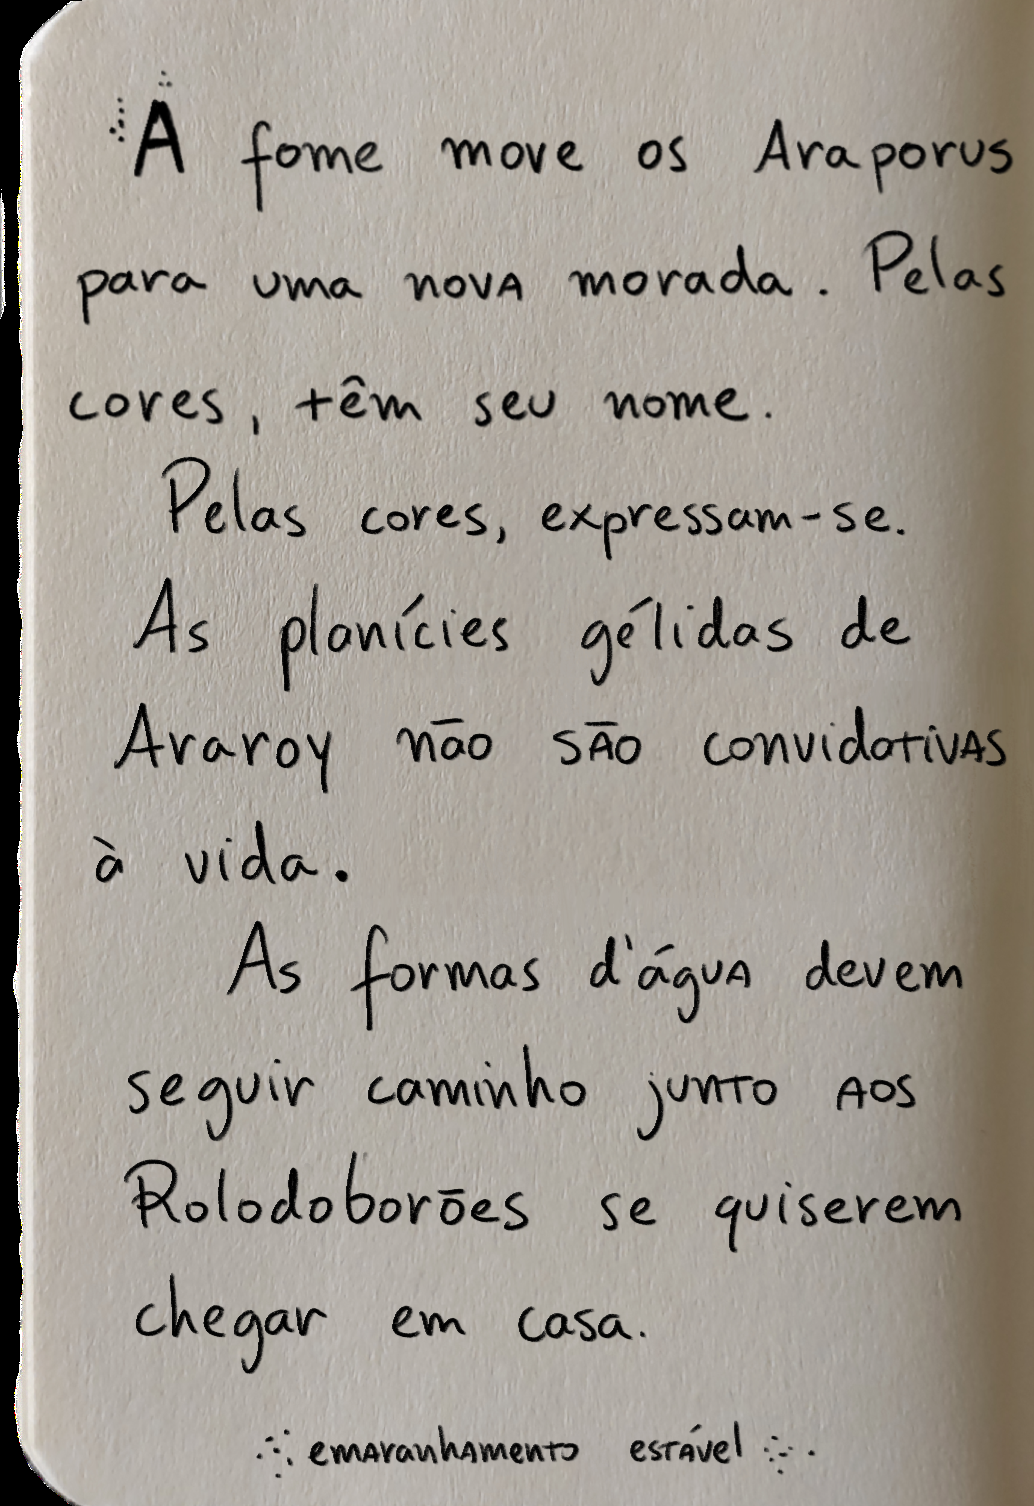 A fome move os Araporus
para uma nova morada. Pelas
cores, têm seu nome.
Pelas cores, expressam-se.
As planícies gélidas de
Araroy não são convidativas
à vida.
As formas d'água devem
seguir caminho junto aos
Rolodoborões se quiserem
chegar em casa.
emaranhamento estável